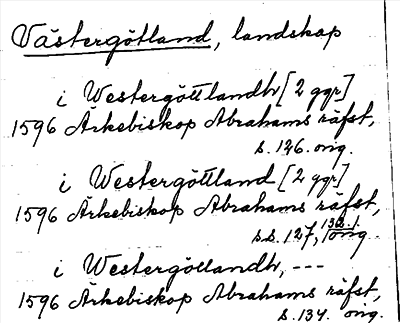 Västergötland, landskap
i Westergöttlandh [2 ggr]
1596 Ärkebiskop Abrahams räfst,
s. 126. orig.
i Westergöttland [2 ggr]
1596 Ärkebiskop Abrahams räfst,
s.s. 127, 132. orig.
i Westergötlandh, ---
1596 Ärkebiskop Abrahams räfst,
s. 134. orig.